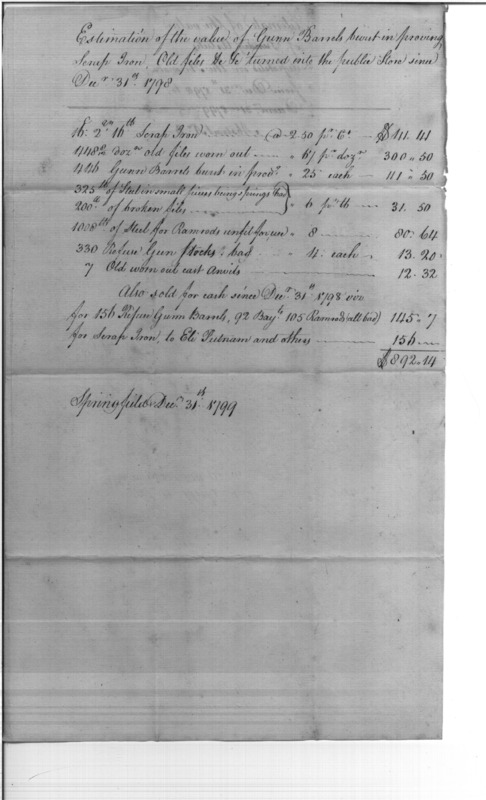 Estimation of the value of Gunn Barrels burst in proving
Scrap Iron, Old files &c &c turned into the public Store since
Decr. 31st 1798
16. 2 16 lb Scrap Iron @ 2.50 pr. Ct $41.41
448 2/2 dozn old files worn out " 67 pr dozn 300 " 50
446 Gunn Barrels burst in provg " 25 each 111 " 50
325 lb of Steel in small pieces being springs &c
200 lb of broken files " 6 pr lb 31. 50
1008 lb of Steel for Ramrods unfit for use " 8 80. 64
330 Refuse Gun Stocks bad " 4. each 13. 20
7 Old worn out cast Anvils 12. 32
Also sold for cash since Decr. 31st 1798 viz
for 156 Refuse Gunn Barrels, 92 Bayts 105 Ramrods (all bad) 145 " 7
for Scrap Iron, to Eli Putnam and others 156 "
$892.14
Springfield Decr. 31st 1799